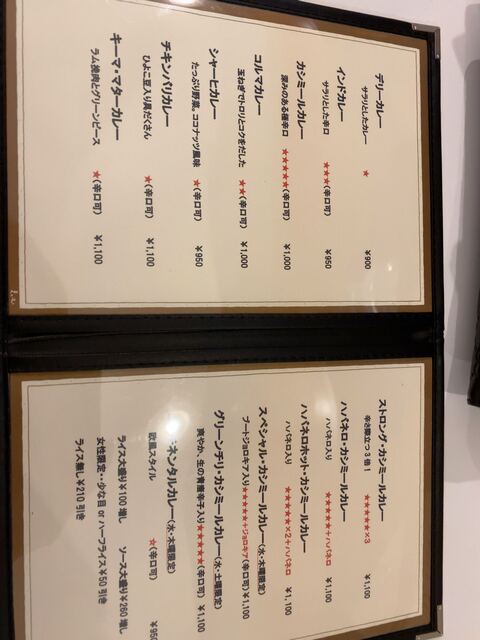 デリーカレー
サラリとしたカレー ★ ￥900
インドカレー
サラリとした辛口 ★★★(辛口可) ￥950
カシミールカレー
深みのある極辛口 ★★★★★(辛口可) ￥1,000
コルマカレー
玉ねぎでトロリとコクをだした ★★(辛口可) ￥1,000
シャーヒカレー
たっぷり野菜。ココナッツ風味 ★(辛口可) ￥950
チキンパリカレー
ひよこ豆入り具だくさん ★(辛口可) ￥1,100
キーマ・マターカレー
ラム挽肉とグリーンピース ★(辛口可) ￥1,100
ストロング・カシミールカレー
辛さ際立つ3倍! ★★★★★×3 ￥1,100
ハバネロ・カシミールカレー
ハバネロ入り ★★★★★+ハバネロ ￥1,100
ハバネロホット・カシミールカレー
ハバネロ入り ★★★★★×2+ハバネロ ￥1,100
スペシャル・カシミールカレー(水・木曜限定)
ブートジョロキア入り★★★★★+ジョロキア(辛口可)￥1,100
グリーンチリ・カシミールカレー(水・土曜限定)
爽やか、生の青唐辛子入り★★★★★(辛口可) ￥1,100
ネンタルカレー(水・木曜限定)
欧風スタイル ★(辛口可) ￥950
ライス大盛り￥100増し ソース大盛り￥260増し
女性限定・・少な目 or ハーフライス￥50引き
ライス無し￥210引き